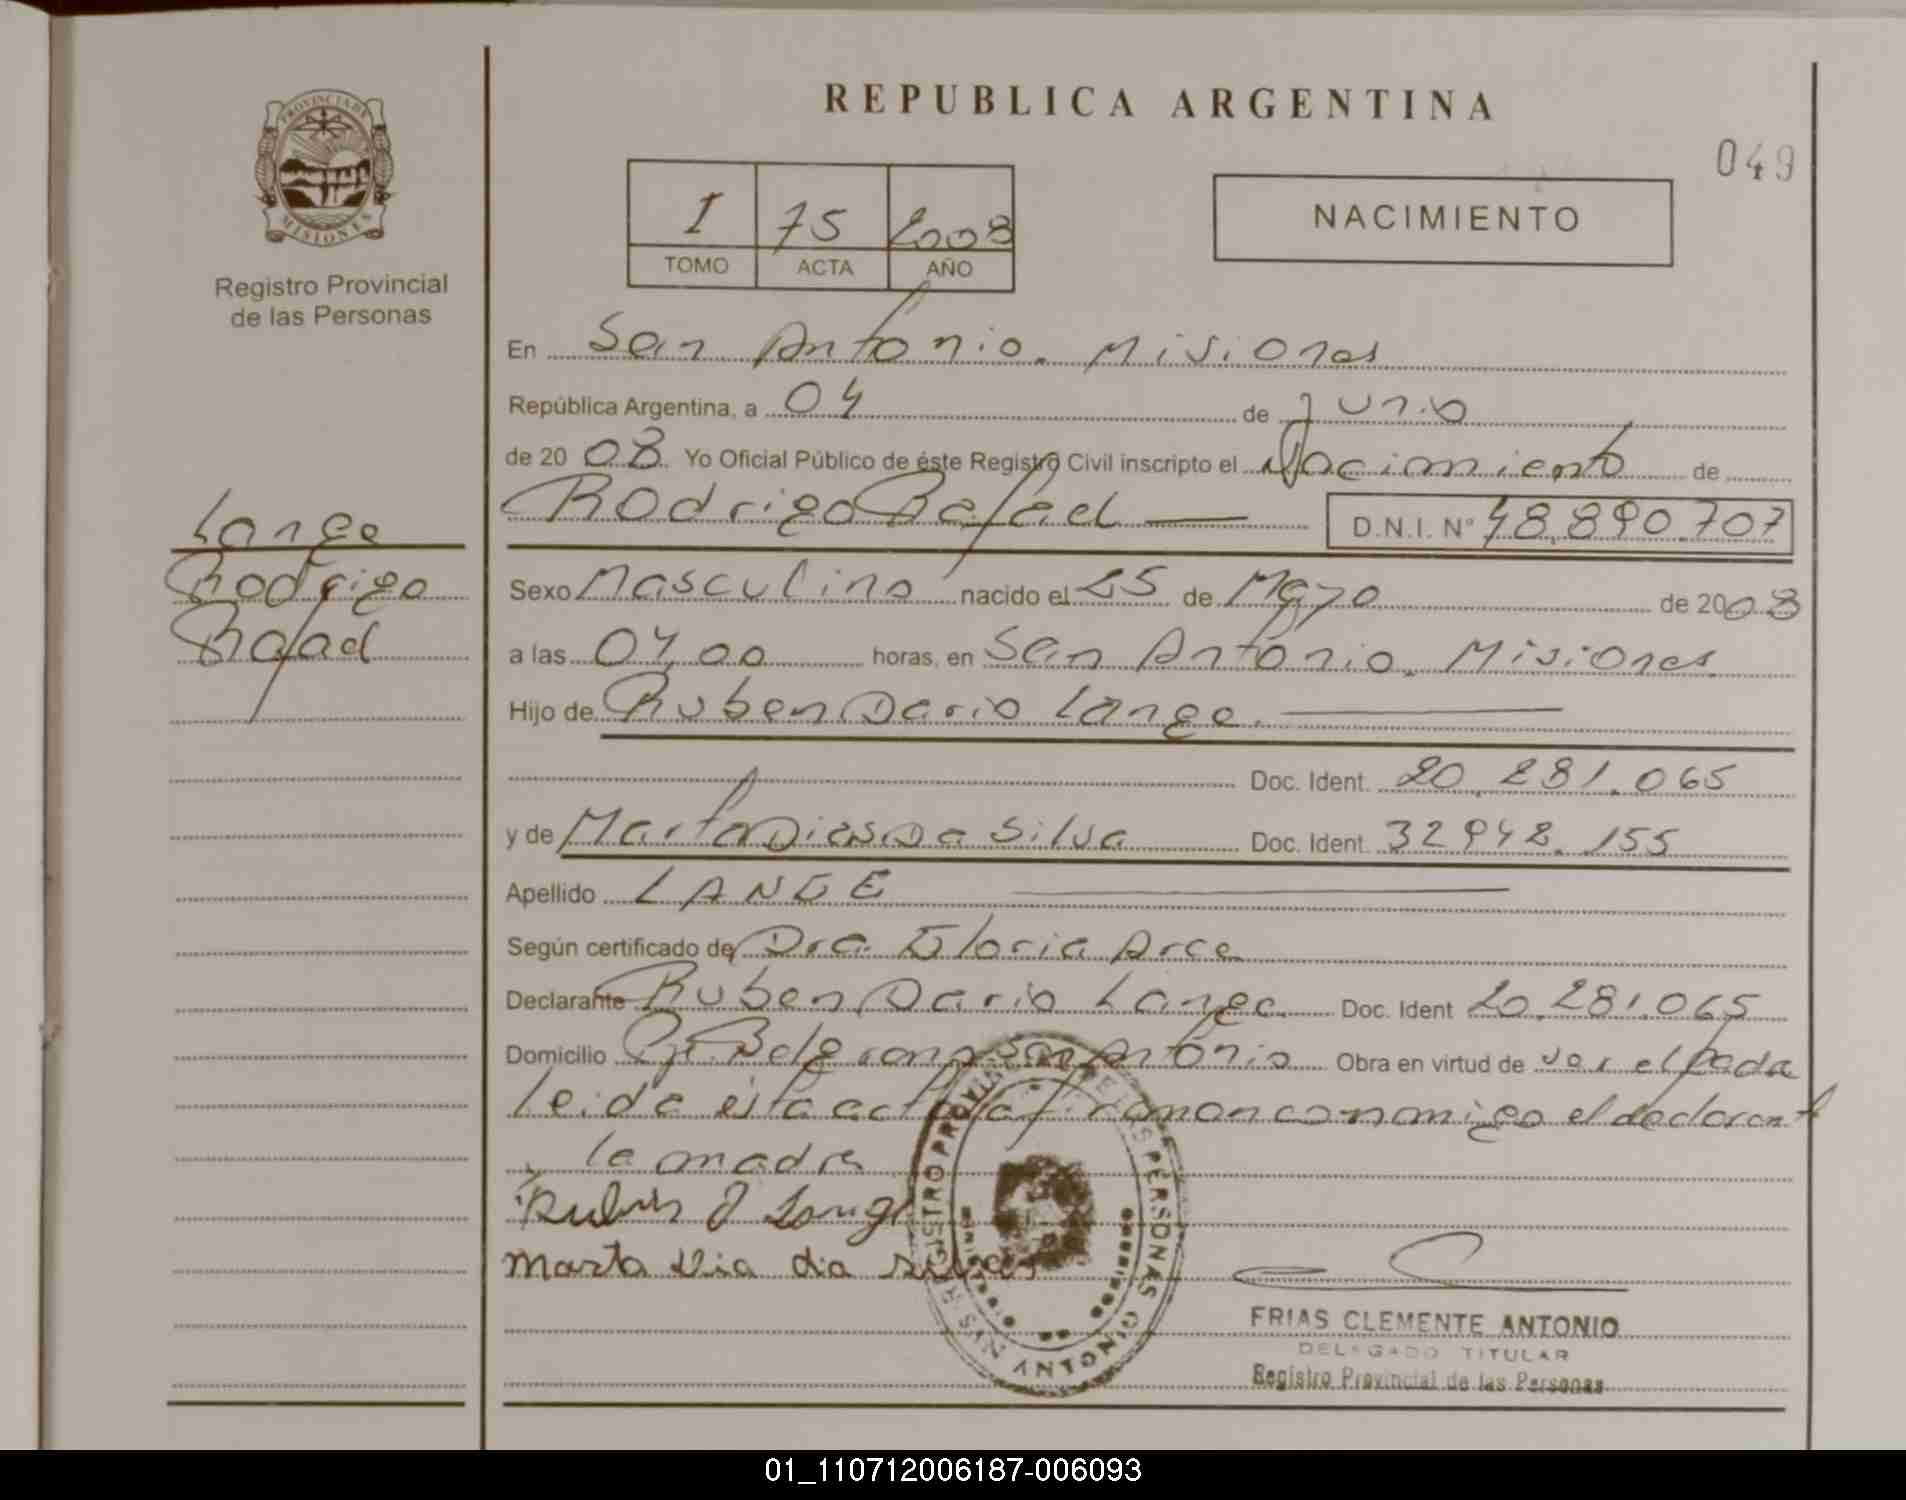 REPUBLICA ARGENTINA
049
PROVINCIA DE MISIONES
Registro Provincial
de las Personas
I 75 2008
TOMO ACTA AÑO
NACIMIENTO
En San Antonio. Misiones
República Argentina, a 04 de Junio
de 2008 Yo Oficial Público de éste Registro Civil inscripto el Nacimiento de
Rodrigo Rafael D.N.I. Nº 48.890.707
Lange
Rodrigo
Rafael
Sexo Masculino nacido el 25 de Mayo de 2008
a las 04,00 horas, en San Antonio. Misiones
Hijo de Ruben Dario Lange.
Doc. Ident. 20.281.065
y de Marta Dias Da Silva Doc. Ident. 32.942.155
Apellido LANGE
Según certificado de Dra. Gloria Arce
Declarante Ruben Dario Lange. Doc. Ident 20.281.065
Domicilio Belgrano San Antonio Obra en virtud de ser el Padre
leida ésta acta la firman conmigo el declarante
y la madre
Ruben D Lange
Marta Dia da silva
REGISTRO PROVINCIAL DE LAS PERSONAS
SAN ANTONIO
FRIAS CLEMENTE ANTONIO
DELEGADO TITULAR
Registro Provincial de las Personas
01_110712006187-006093